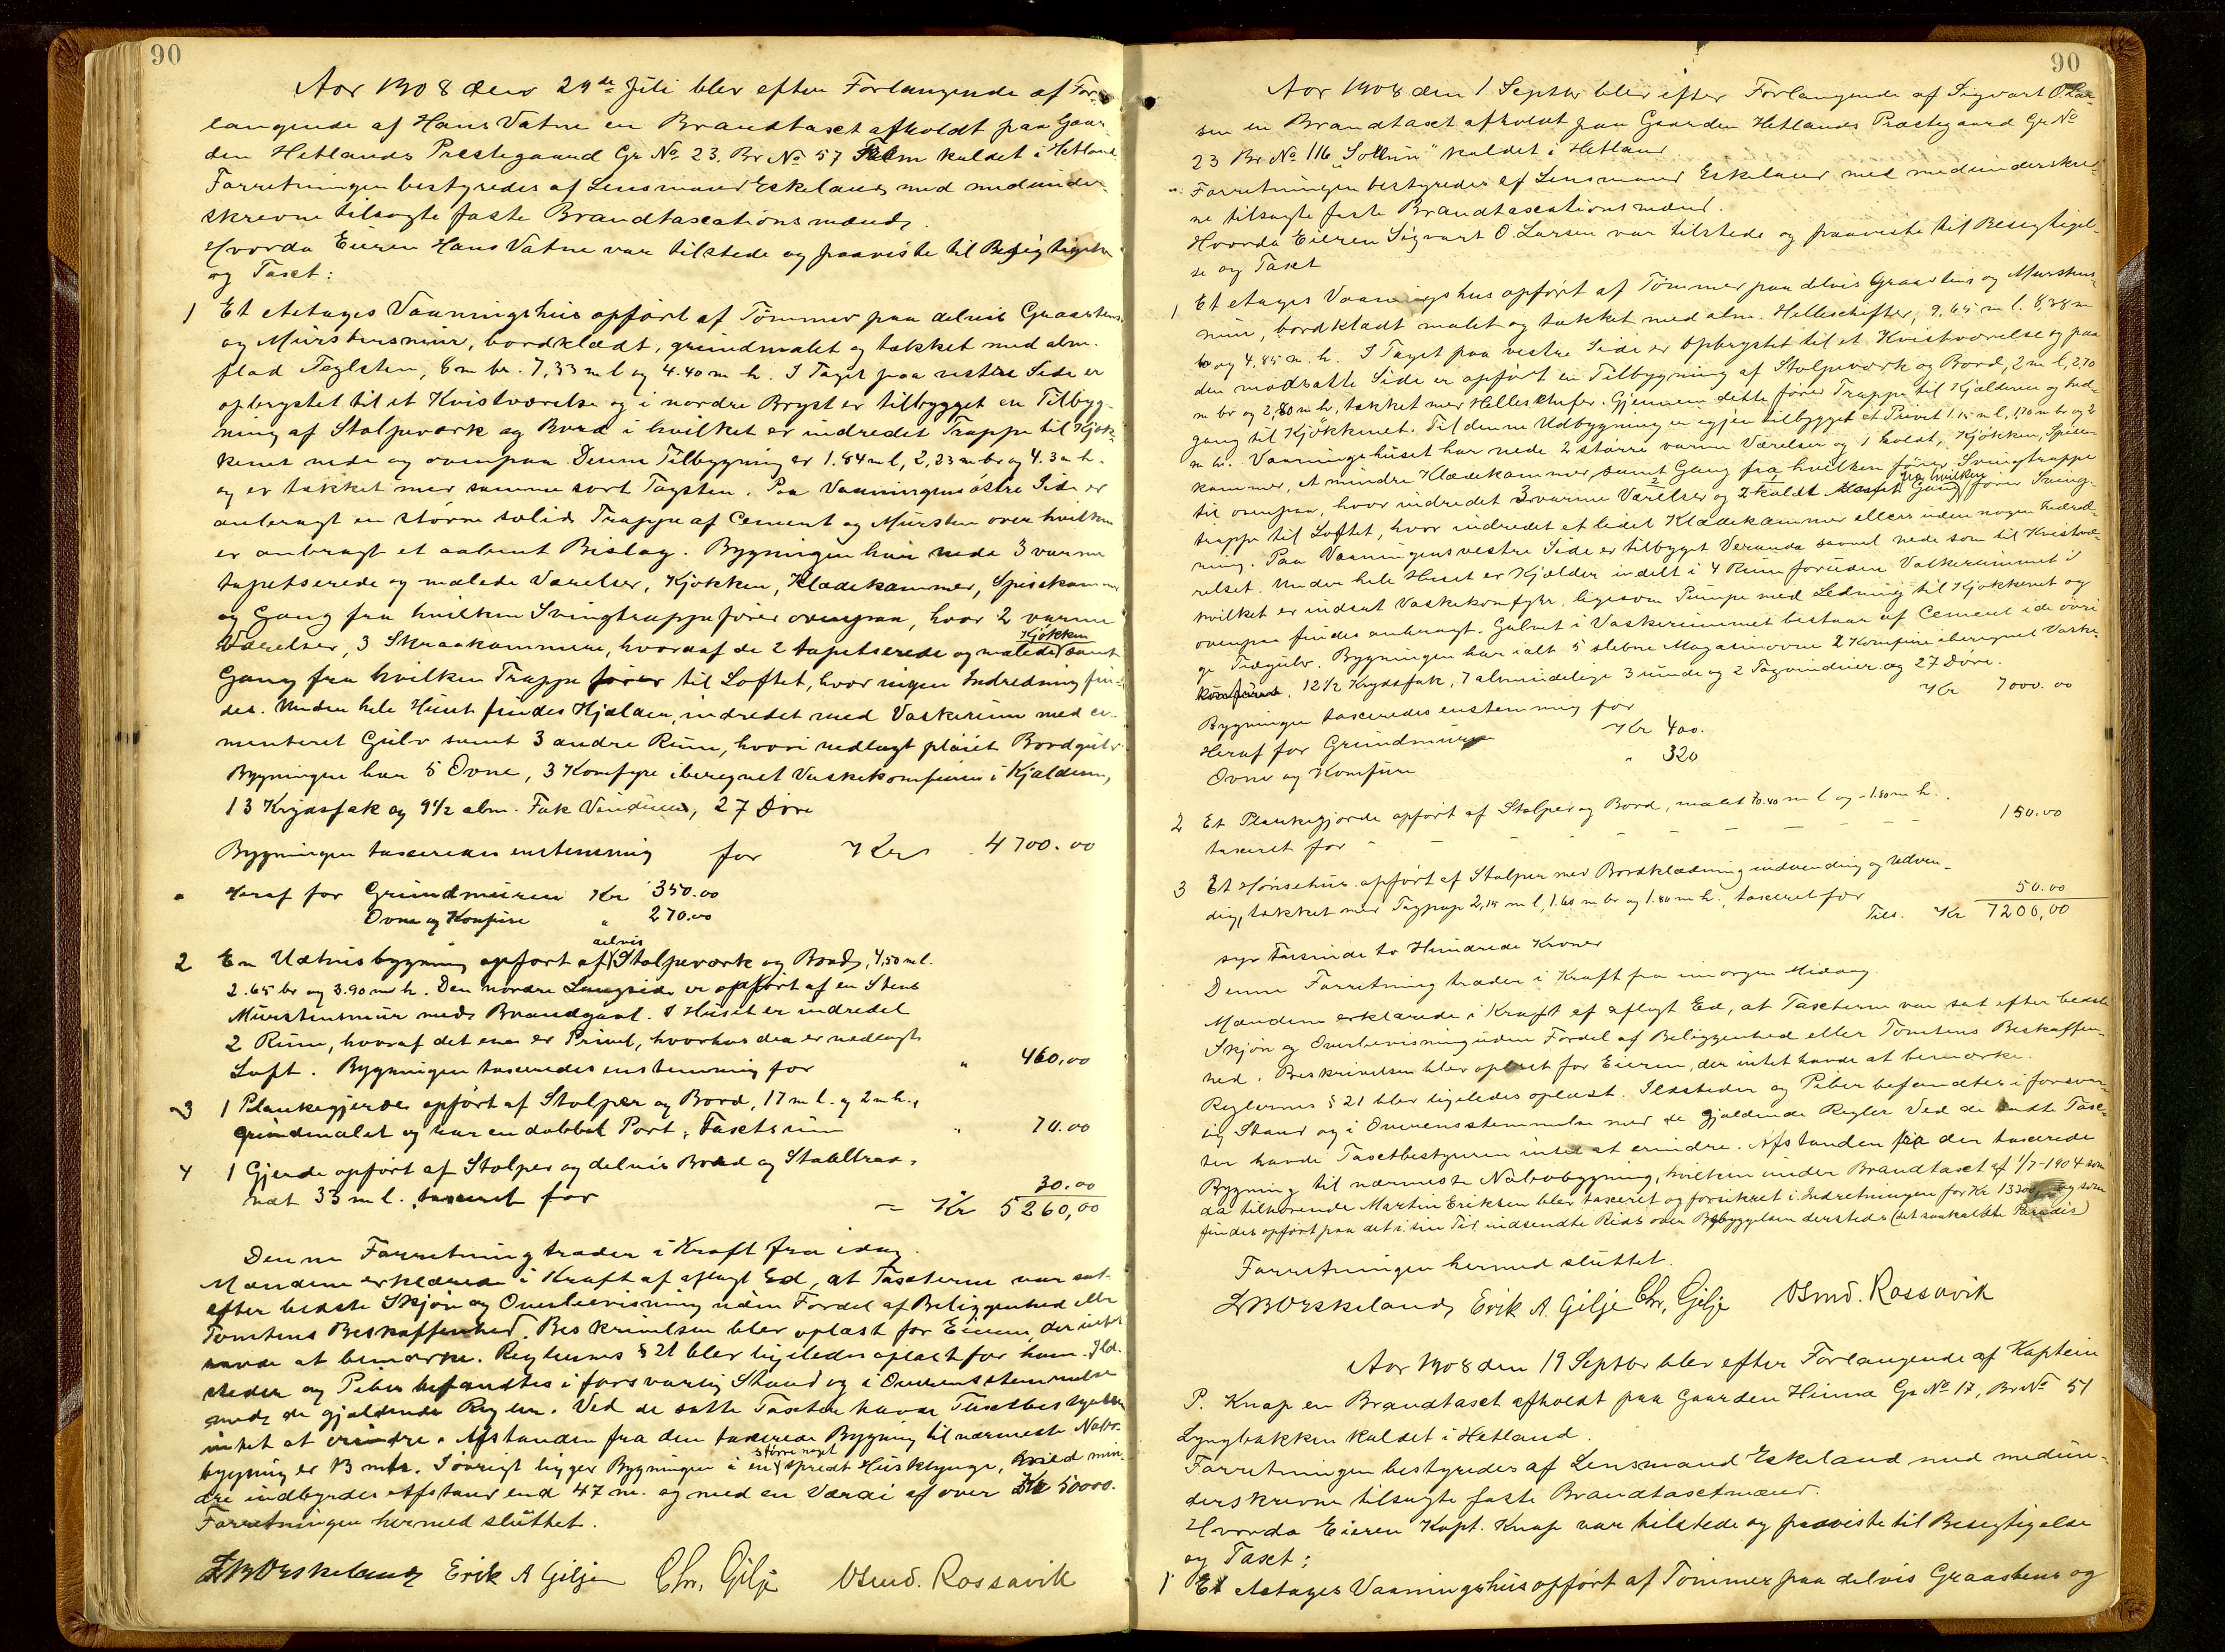 90
Aar 1908 den 29de Juli blev efter Forlangende af For-
langende af Hans Vatne en Brandtaxt afholdt paa Gaar-
den Hetlands Prestegaard Gr No 23. Br No 57 kaldet i Hetland
Forretningen bestyredes af Lensmand Eskeland med medunder-
skrevne tilsagte faste Brandtaxationsmænd.
Hvorda Eieren Hans Vatne var tilstede og paaviste til Besigtigelse
og Taxt:
1 Et Aetages Vaaningshus opført af Tømmer paa delvis Graastens
og Murstensmur, bordklædt, grundmalet og tækket med alm.
flad Taglsten, 8 m br. 7,33 m l og 4.40 m h. I Taget paa vestre Side er
opbrystet til et Kvistværelse og i nordre Bryst er tilbygget en Tilbyg-
ning af Stolpeværk og Bord i hvilket er indredet Trappe til Kjøk-
kenet nede og ovenpaa. Denne Tilbygning er 1.84 m l, 2,23 m br og 4.3 m h.
og er tækket med samme sort Tagsten. Paa Vaaningens østre Side er
anbragt en større solid Trappe af Cement og Mursten over hvilken
er anbragt et aabent Bislag. Bygningen har nede 3 varme
tapetserede og malede Værelser, Kjøkken, Klædekammer, Spisekammer
og Gang fra hvilken Svingtrappe fører ovenpaa, hvor 2 varme
Værelser, 3 Skraakammere, hvoraf de 2 tapetserede og malede Kjøkken samt
Gang fra hvilken Trappe fører til Loftet, hvor ingen Indredning fin-
des. Under hele Huset findes Kjælder, indredet med Vaskerum med ce-
menteret Gulv samt 3 andre Rum, hvori nedlagt pløiet Bordgulv.
Bygningen har 5 Ovne, 3 Komfyre iberegnet Vaskekomfuren i Kjælderen,
13 Krydsfak og 9 1/2 alm. Fak Vinduer, 27 Døre
Bygningen taxeredes enstemmig for Kr 4700.00
Heraf for Grundmuren Kr 350.00
Ovne og Komfure " 270.00
2 En Udhusbygning opført af delvis Stolpeværk og Bord, 4,50 m l.
2.65 br og 3.90 m h. Den nordre Langside er opført af en Stens
Murstensmur med Brandgavl. I Huset er indredet
2 Rum, hvoraf det ene er Privet, hvorhos der er nedlagt
Loft. Bygningen taxeredes enstemmig for " 460,00
3 1 Plankegjerde opført af Stolper og Bord, 17 m l. og 2 m h.,
grundmalet og har en dobbel Port. Taxtsum " 70.00
4 1 Gjerde opført af Stolper og delvis Bord og Staaltraa-
næt 33 m l. taxeret for " 30.00
Kr 5260,00
Denne Forretning træder i Kraft fra idag.
Mændene erklærede i Kraft af aflagt Ed, at Taxterne var sat
efter bedste Skjøn og Overbevisning uden Fordel af Beliggenhed eller
Tomtens Beskaffenhed. Beskrivelsen blev oplæst for Eieren, der intet
havde at bemærke. Reglernes § 21 blev ligeledes oplæst for ham. Ild-
steder og Piber befandtes i forsvarlig Stand og i Overensstemmelse
med de gjældende Regler. Ved de satte Taxter havde Taxtbestyreren
intet at erindre. Afstanden fra den taxerede Bygning til nærmeste Nabo-
bygning er 13 mtr. I øvrigt ligger Bygningen i en større noget spredt Husklynge, med min-
dre indbyrdes Afstand end 47 m. og med en Værdi af over Kr 50000.
Forretningen hermed sluttet.
Eskeland Erik A Gilje Chr. Gilje Osmd. Rossavik
90
Aar 1908 den 1 Septbr blev efter Forlangende af Sigvart O. Lar-
sen en Brandtaxt afholdt paa Gaarden Hetlands Prestegaard Gr No
23 Br No 116 kaldet i Hetland
Forretningen bestyredes af Lensmand Eskeland med medunderskrev-
ne tilsagte faste Brandtaxationsmænd.
Hvorda Eieren Sigvart O. Larsen var tilstede og paaviste til Besigtigel-
se og Taxt
1 Et etages Vaaningshus opført af Tømmer paa delvis Graastens og Murstens-
mur, bordklædt malet og tækket med alm. Helleschifter, 9,65 m l. 8,38 m
br og 4,85 m. h. I Taget paa vestre Side er opbrystet til et Kvistværelse og paa
den modsatte Side er opført en Tilbygning af Stolpeværk og Bord, 2 m l, 2,70
m br og 2,80 m h, tækket med Helleskifer. Gjennem dette fører Trappe til Kjælderen og Ind-
gang til Kjøkkenet. Til denne Udbygning er igjen tilbygget et Privet 1.15 m l, 1,70 m br og 2
m h. Vaaningshuset har nede 2 større varme Værelser og 1 koldt, Kjøkken, Spise-
kammer, et mindre Klædekammer, samt Gang fra hvilken fører Svingtrappe
til ovenpaa, hvor indredet 3 varme Værelser og 2 koldt Gang fra hvilken fører Sving-
trappe til Loftet, hvor indredet et lidet Klædekammer ellers uden nogen Indred-
ning. Paa Vaaningens vestre Side er tilbygget Veranda saavel nede som til Kvistvæ-
relset. Under hele Huset er Kjælder indelt i 4 Rum foruden Vaskerummet i
hvilket er indsat Vaskekomfyr, ligesom Pumpe med Ledning til Kjøkkenet og
ovenpaa findes anbragt. Gulvet i Vaskerummet bestaar af Cement i de øvri
ge Trægulv. Bygningen har ialt 5 slebne Magasinovne 2 Komfure iberegnet Vaske-
komfuren. 12 1/2 Krydsfak, 7 almindelige 3 runde og 2 Tagvinduer og 27 Døre.
Bygningen taxeredes enstemmig for Kr 7000.00
Heraf for Grundmuren Kr 400.
Ovne og Komfure " 320
2 Et Plankegjerde opført af Stolper og Bord, malet 70.40 m l og 1.80 m h.
taxeret for 150.00
3 Et Hønsehus opført af Stolper med Bordklædning indvendig og udven-
dig, tækket med Tagpap 2,15 m l, 1.60 m br og 1.80 m h., taxeret for 50.00
Tils. Kr 7200,00
syv Tusinde to Hundrede Kroner
Denne Forretning træder i Kraft fra imorgen Midag.
Mændene erklærede i Kraft af aflagt Ed, at Taxterne var sat efter bedste
Skjøn og Overbevisning uden Fordel af Beliggenhed eller Tomtens Beskaffen-
hed. Beskrivelsen blev oplæst for Eieren, der intet havde at bemærke.
Reglernes § 21 blev ligeledes oplæst. Ildsteder og Piber befandtes i forsvar-
lig Stand og i Overensstemmelse med de gjældende Regler. Ved de satte Tax-
ter havde Taxtbestyreren intet at erindre. Afstanden fra den taxerede
Bygning til nærmeste Nabobygning, hvilken under Brandtaxt af 1/7-1904 som
da tilhørende Martin Eriksen blev taxeret og forsikret i Indretningen for Kr 13300 og som
findes opført paa det i sin Tid indsendte Rids over Bebyggelsen dersteds (det saakaldte Paradis)
Forretningen hermed sluttet.
Eskeland Erik A. Gilje Chr. Gilje Osmd. Rossavik
Aar 1908 den 19 Septbr blev efter Forlangende af Kaptein
P. Knap en Brandtaxt afholdt paa Gaarden Hinna Gr No 17, Br No 51
Lyngbakken kaldet i Hetland.
Forretningen bestyredes af Lensmand Eskeland med medun-
derskrevne tilsagte faste Brandtaxtmænd.
Hvorda Eieren Kapt. Knap var tilstede og paaviste til Besigtigelse
og Taxt:
1 Et Aetages Vaaningshus opført af Tømmer paa delvis Graastens og